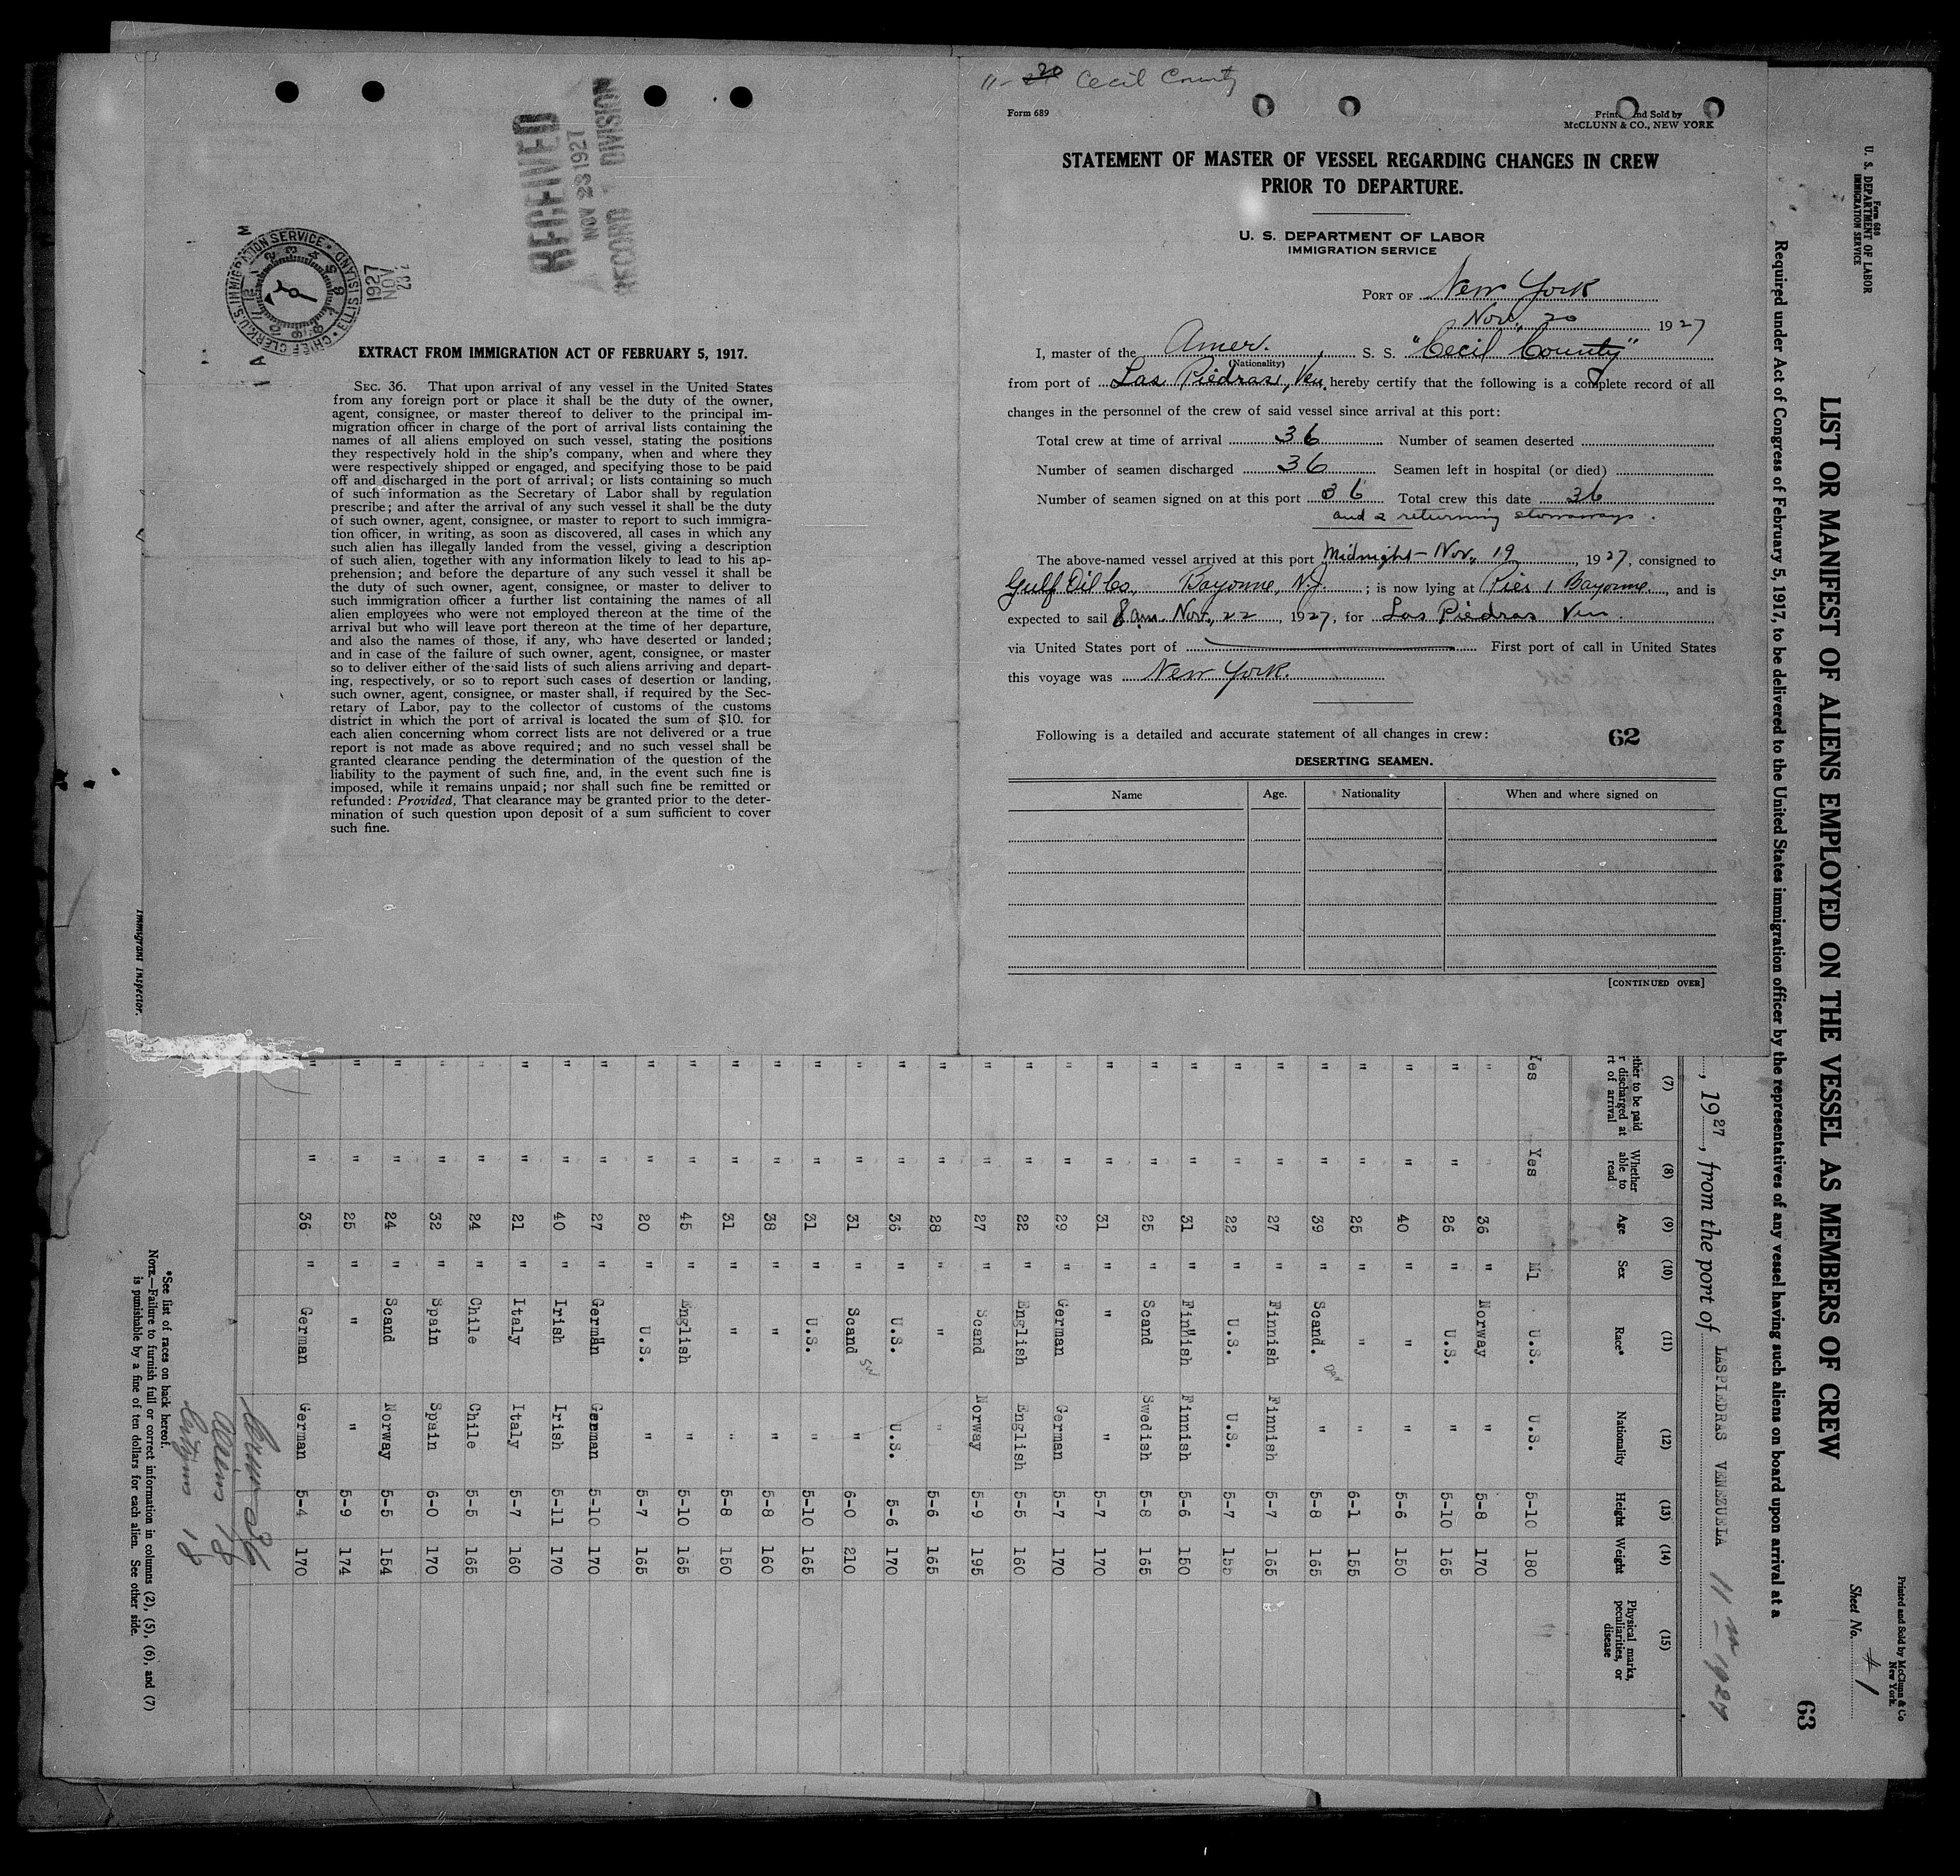 11-20 Cecil County
Form 689
Printed and Sold by
McCLUNN & CO., NEW YORK
STATEMENT OF MASTER OF VESSEL REGARDING CHANGES IN CREW
PRIOR TO DEPARTURE.
U. S. DEPARTMENT OF LABOR
IMMIGRATION SERVICE
PORT OF New York
Nov. 20 1927
I, master of the Amer. S. S. "Cecil County"
(Nationality)
from port of Las Piedras, Ven. hereby certify that the following is a complete record of all
changes in the personnel of the crew of said vessel since arrival at this port:
Total crew at time of arrival 36 Number of seamen deserted
Number of seamen discharged 36 Seamen left in hospital (or died)
Number of seamen signed on at this port 36 Total crew this date 36
and 2 returning stowaways.
The above-named vessel arrived at this port Midnight - Nov. 19, 1927, consigned to
Gulf Oil Co., Bayonne, N.J. ; is now lying at Pier 1 Bayonne, and is
expected to sail 8 am. Nov. 22, 1927, for Las Piedras Ven.
via United States port of First port of call in United States
this voyage was New York.
Following is a detailed and accurate statement of all changes in crew: 62
DESERTING SEAMEN.
Name Age. Nationality When and where signed on
[CONTINUED OVER]
RECEIVED
NOV 23 1927
RECORD DIVISION
CHIEF CLERK U. S. IMMIGRATION SERVICE ELLIS ISLAND
NOV
1927
EXTRACT FROM IMMIGRATION ACT OF FEBRUARY 5, 1917.
SEC. 36. That upon arrival of any vessel in the United States
from any foreign port or place it shall be the duty of the owner,
agent, consignee, or master thereof to deliver to the principal im-
migration officer in charge of the port of arrival lists containing the
names of all aliens employed on such vessel, stating the positions
they respectively hold in the ship's company, when and where they
were respectively shipped or engaged, and specifying those to be paid
off and discharged in the port of arrival; or lists containing so much
of such information as the Secretary of Labor shall by regulation
prescribe; and after the arrival of any such vessel it shall be the duty
of such owner, agent, consignee, or master to report to such immigra-
tion officer, in writing, as soon as discovered, all cases in which any
such alien has illegally landed from the vessel, giving a description
of such alien, together with any information likely to lead to his ap-
prehension; and before the departure of any such vessel it shall be
the duty of such owner, agent, consignee, or master to deliver to
such immigration officer a further list containing the names of all
alien employees who were not employed thereon at the time of the
arrival but who will leave port thereon at the time of her departure,
and also the names of those, if any, who have deserted or landed;
and in case of the failure of such owner, agent, consignee, or master
so to deliver either of the said lists of such aliens arriving and depart-
ing, respectively, or so to report such cases of desertion or landing,
such owner, agent, consignee, or master shall, if required by the Sec-
retary of Labor, pay to the collector of customs of the customs
district in which the port of arrival is located the sum of $10. for
each alien concerning whom correct lists are not delivered or a true
report is not made as above required; and no such vessel shall be
granted clearance pending the determination of the question of the
liability to the payment of such fine, and, in the event such fine is
imposed, while it remains unpaid; nor shall such fine be remitted or
refunded: Provided, That clearance may be granted prior to the deter-
mination of such question upon deposit of a sum sufficient to cover
such fine.
Immigrant Inspector.
Form 689
U. S. DEPARTMENT OF LABOR
IMMIGRATION SERVICE
Printed and Sold by McClunn & Co
New York.
Sheet No. # 1
LIST OR MANIFEST OF ALIENS EMPLOYED ON THE VESSEL AS MEMBERS OF CREW
63
Required under Act of Congress of February 5, 1917, to be delivered to the United States immigration officer by the representatives of any vessel having such aliens on board upon arrival at a
, 1927, from the port of LASPIEDRAS VENEZUELA 11 1927
(7) (8) (9) (10) (11) (12) (13) (14) (15)
ether to be paid r discharged at rt of arrival Whether able to read Age Sex Race* Nationality Height Weight Physical marks, peculiarities, or disease
Yes Yes Ml U.S. U.S. 5-10 180
" " 36 " Norway " 5-8 170
" " 26 " U.S. " 5-10 165
" " 40 " " " 5-6 150
" " 25 " " " 6-1 155
" " 39 " Scand. " 5-8 165
" " 27 " Finnish Finnish 5-7 165
" " 22 " U.S. U.S. 5-7 155
" " 31 " Finnish Finnish 5-6 150
" " 25 " Scand Swedish 5-8 165
" " 31 " " " 5-7 170
" " 29 " German German 5-7 170
" " 22 " English English 5-5 160
" " 27 " Scand Norway 5-9 195
" " 28 " " " 5-6 165
" " 36 " U.S. U.S. 5-6 170
" " 31 " Scand SW " 6-0 210
" " 31 " U.S. " 5-10 165
" " 38 " " " 5-8 160
" " 31 " " " 5-8 150
" " 45 " English " 5-10 165
" " 20 " U.S. " 5-7 165
" " 27 " German German 5-10 170
" " 40 " Irish Irish 5-11 170
" " 21 " Italy Italy 5-7 160
" " 24 " Chile Chile 5-5 165
" " 32 " Spain Spain 6-0 170
" " 24 " Scand Norway 5-5 154
" " 25 " " " 5-9 174
" " 36 " German German 5-4 170
Crew 36
Aliens 18
Citizens 18
*See list of races on back hereof.
NOTE.—Failure to furnish full or correct information in columns (2), (5), (6), and (7)
is punishable by a fine of ten dollars for each alien. See other side.